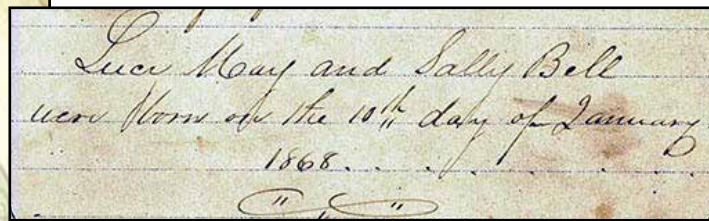 Luce May and Sally Bell
were Born on the 10th day of January
1868. . . . . . . .